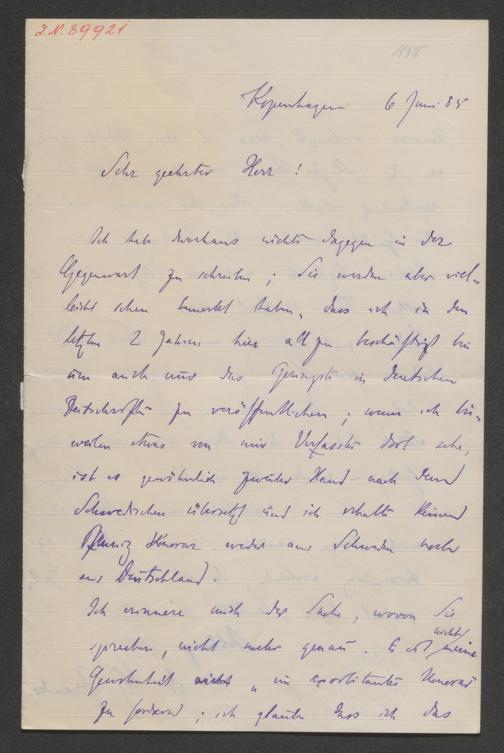 J.N. 89921
Kopenhagen 6 Juni 85
Sehr geehrter Herr!
Ich habe durchaus nichts dagegen in der
Gegenwart zu schreiben; Sie werden aber viel-
leicht schon bemerkt haben, dass ich in den
letzten 2 Jahren hier allzu beschäftigt bin
um auch nur das Geringste in deutschen
Zeitschriften zu veröffentlichen; wenn ich bis-
weilen etwas von mir Verfasstes dort sehe,
ist es gewöhnlich zweiter Hand nach dem
Schwedischen übersetzt und ich erhalte keinen
Pfennig Honorar weder aus Schweden noch
aus Deutschland.
Ich erinnere mich der Sache, wovon Sie
sprechen, nicht mehr genau. Es ist nicht meine
Gewohnheit nicht "ein exorbitantes Honorar
zu fordern; ich glaube dass ich das